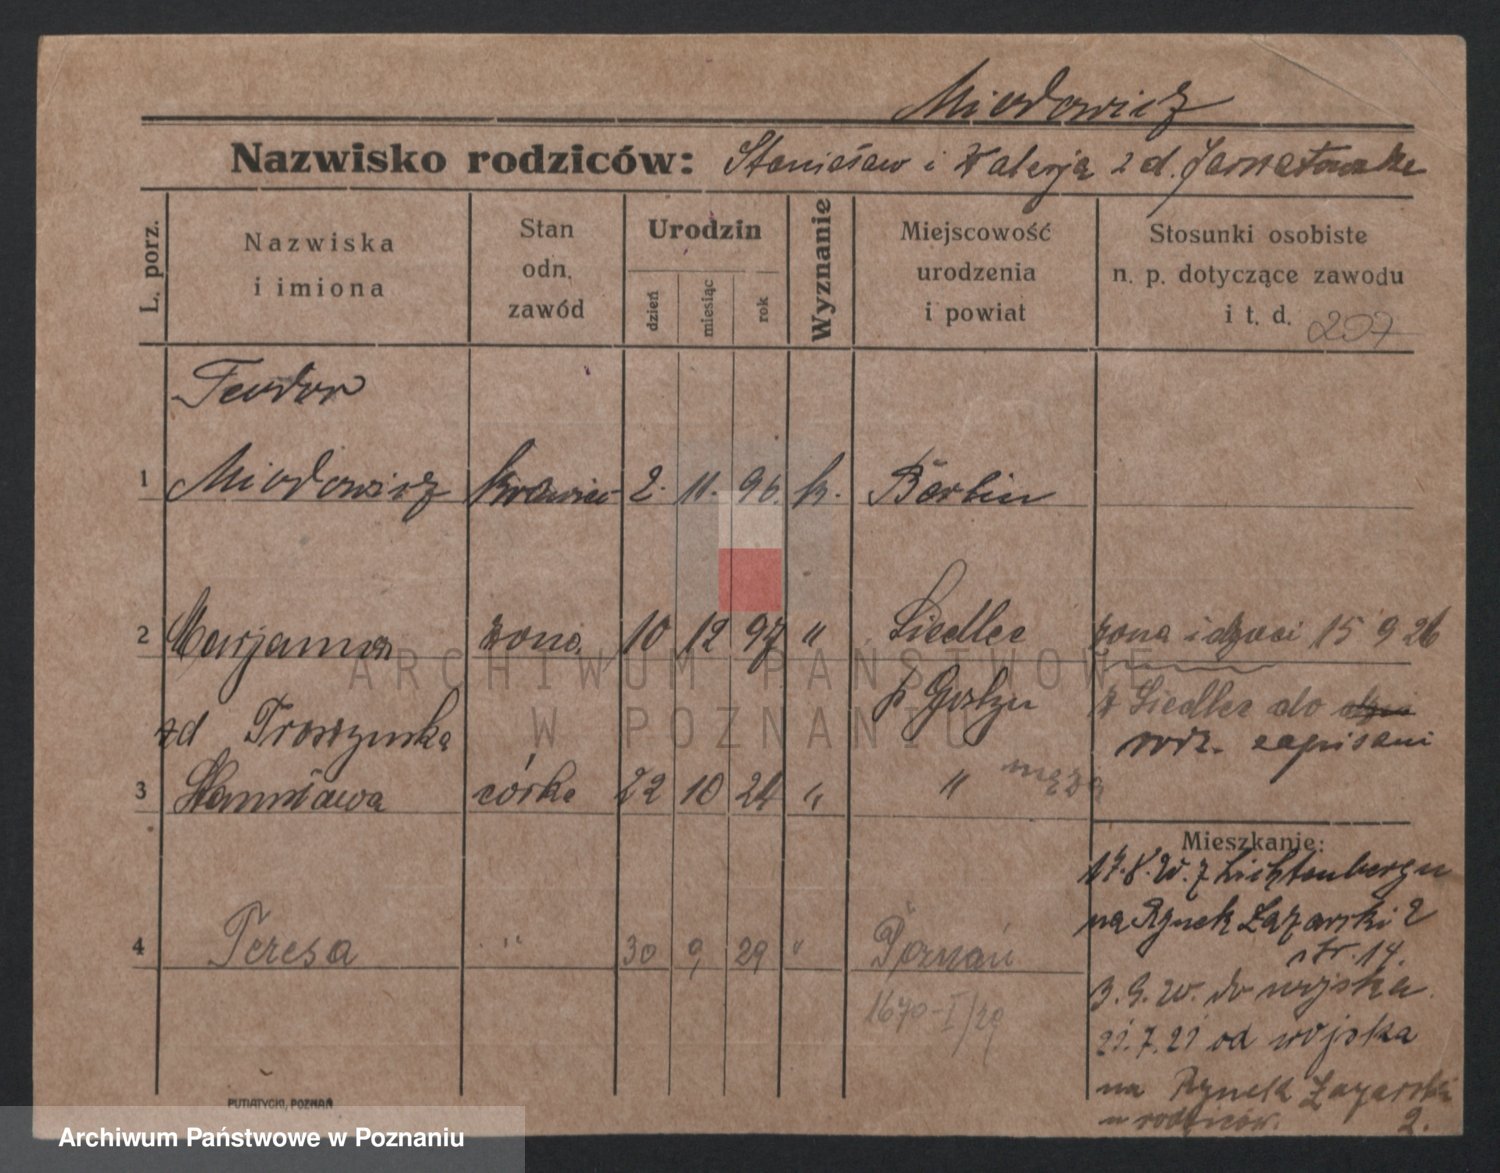 Miodowicz
Nazwisko rodziców: Stanisław i Walerja z d.
L. porz.
Nazwiska
i imiona
Stan
odn.
zawód
Urodzin
dzień
miesiąc
rok
Wyznanie
Miejscowość
urodzenia
i powiat
Stosunki osobiste
n. p. dotyczące zawodu
i t. d. 207
Teodor
1 Miodowicz krawiec 2. 11. 96. k. Berlin
2 Marjanna żona 10 12 97 " Siedlec żona i dzieci 15 9 26
p Gostyń z Siedlec do
zd Troszynska
rodz. zapisani
męża
3 Stanisława córka 22 10 24 " "
Mieszkanie:
17.8.20. z Lichtenbergu
na Rynek Łazarski 2
4 Teresa " 30 9 29 " Poznań
str. 14.
3.9.20. do wojska
1670-I/29
21.7.21 od wojska
na Rynek Łazarski
u rodziców. 2.
PUTIATYCKI, POZNAŃ
ARCHIWUM PAŃSTWOWE
W POZNANIU
Archiwum Państwowe w Poznaniu